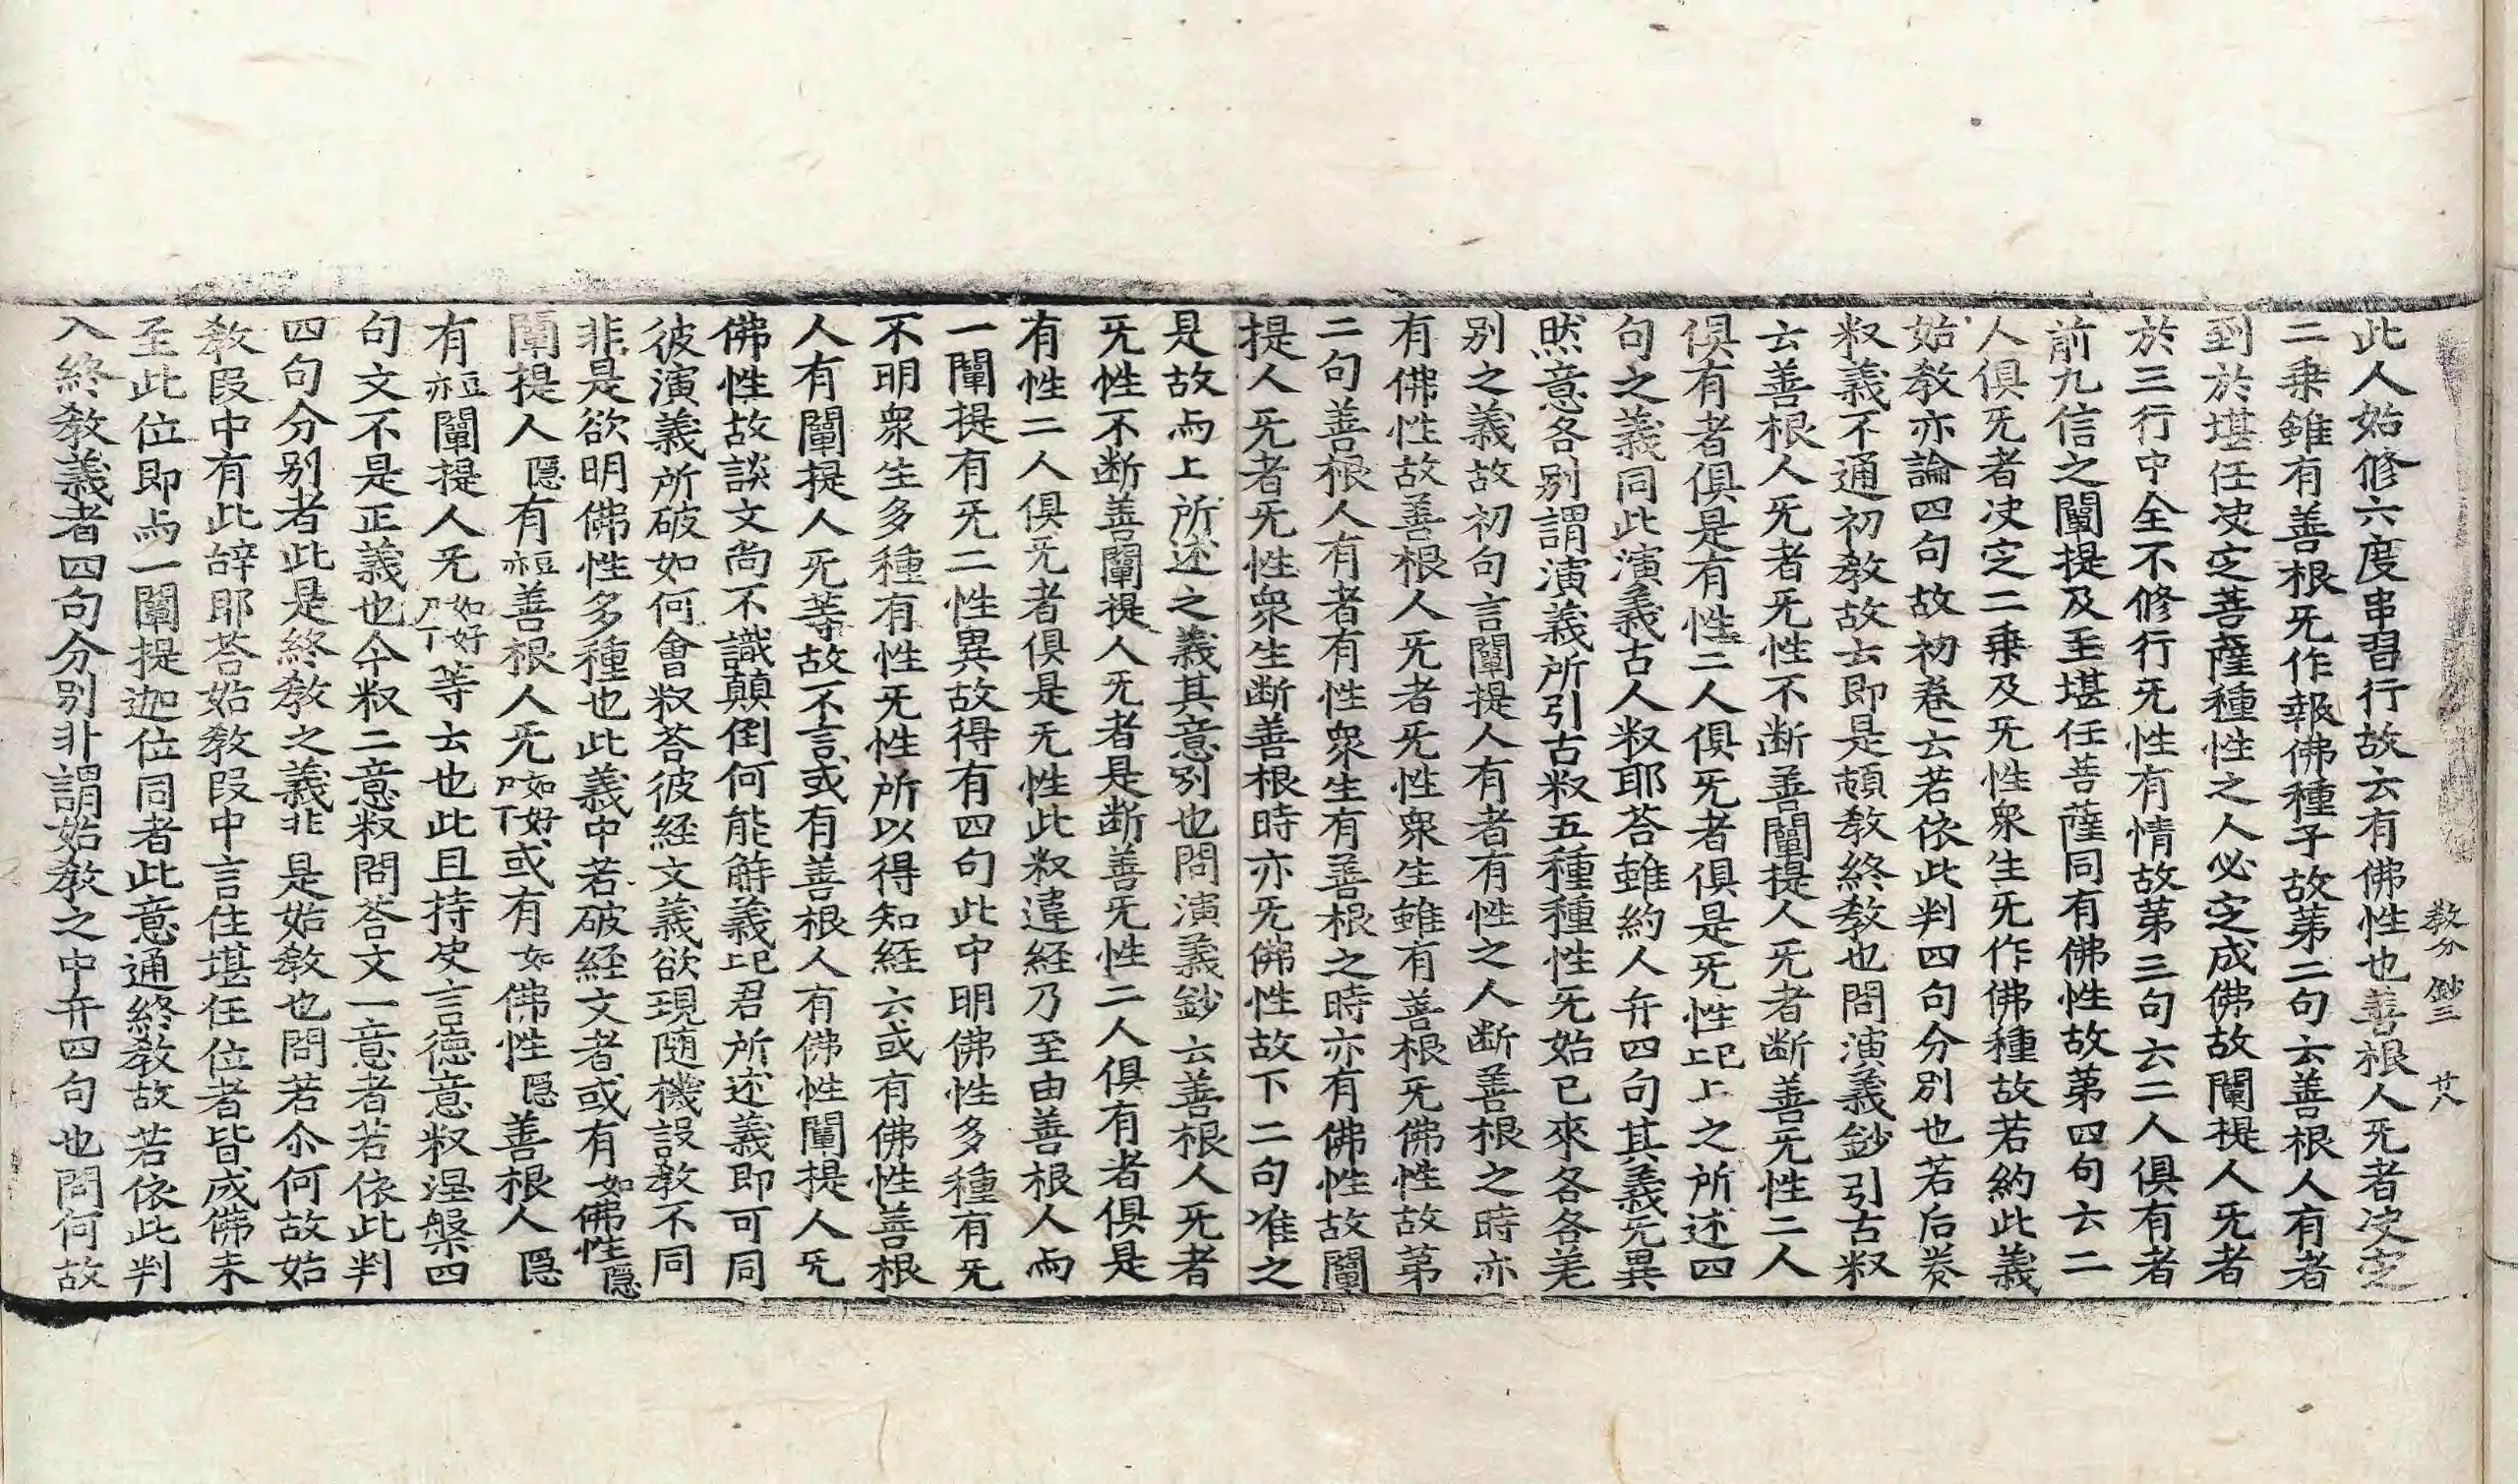 教分 鈔三 廿八
此人始修六度串習行故云有佛性也善根人旡者决定
二乗雖有善根旡作報佛種子故第二句云善根人有者
到於堪任决定菩薩種性之人必定成佛故闡提人旡者
於三行中全不修行旡性有情故第三句云二人俱有者
前九信之闡提及至堪任菩薩同有佛性故第四句云二
人俱旡者决定二乗及旡性衆生旡作佛種故若約此義
始教亦論四句故初卷云若依此判四句分別也若后巻
釈義不通初教故云即是頓教終教也問演義鈔引古釈
云善根人旡者旡性不断善闡提人旡者断善旡性二人
俱有者俱是有性二人俱旡者俱是旡性上已上之所述四
句之義同此演義古人釈耶荅雖約人弁四句其義旡異
然意各別謂演義所引古釈五種種性旡始已來各各差
別之義故初句言闡提人有者有性之人断善根之時亦
有佛性故善根人旡者旡性衆生雖有善根旡佛性故第
二句善根人有者有性衆生有善根之時亦有佛性故闡
提人旡者旡性衆生断善根時亦旡佛性故下二句准之
是故与上所述之義其意別也問演義鈔云善根人旡者
旡性不断善闡提人旡者是断善旡性二人俱有者俱是
有性二人俱旡者俱是旡性此釈違経乃至由善根人而
一闡提有旡二性異故得有四句此中明佛性多種有旡
不明衆生多種有性旡性所以得知経云或有佛性善根
人有闡提人旡等故不言或有善根人有佛性闡提人旡
佛性故談文尚不識顛倒何能解義上已君所述義即可同
彼演義所破如何會釈荅彼経文義欲現随機設教不同
非是欲明佛性多種也此義中若破経文者或有如佛性隠
闡提人隠有亦豆善根人旡如好或有如佛性隠善根人隠
有亦豆闡提人旡如好等云也此且持皮言德意釈涅槃四
句文不是正義也今釈二意釈問荅文一意者若依此判
四句分別者此是終教之義非是始教也問若尒何故始
教段中有此辞耶荅始教段中言住堪任位者皆成佛未
至此位即与一闡提迦位同者此意通終教故若依此判
入終教義者四句分別非謂始教之中弁四句也問何故